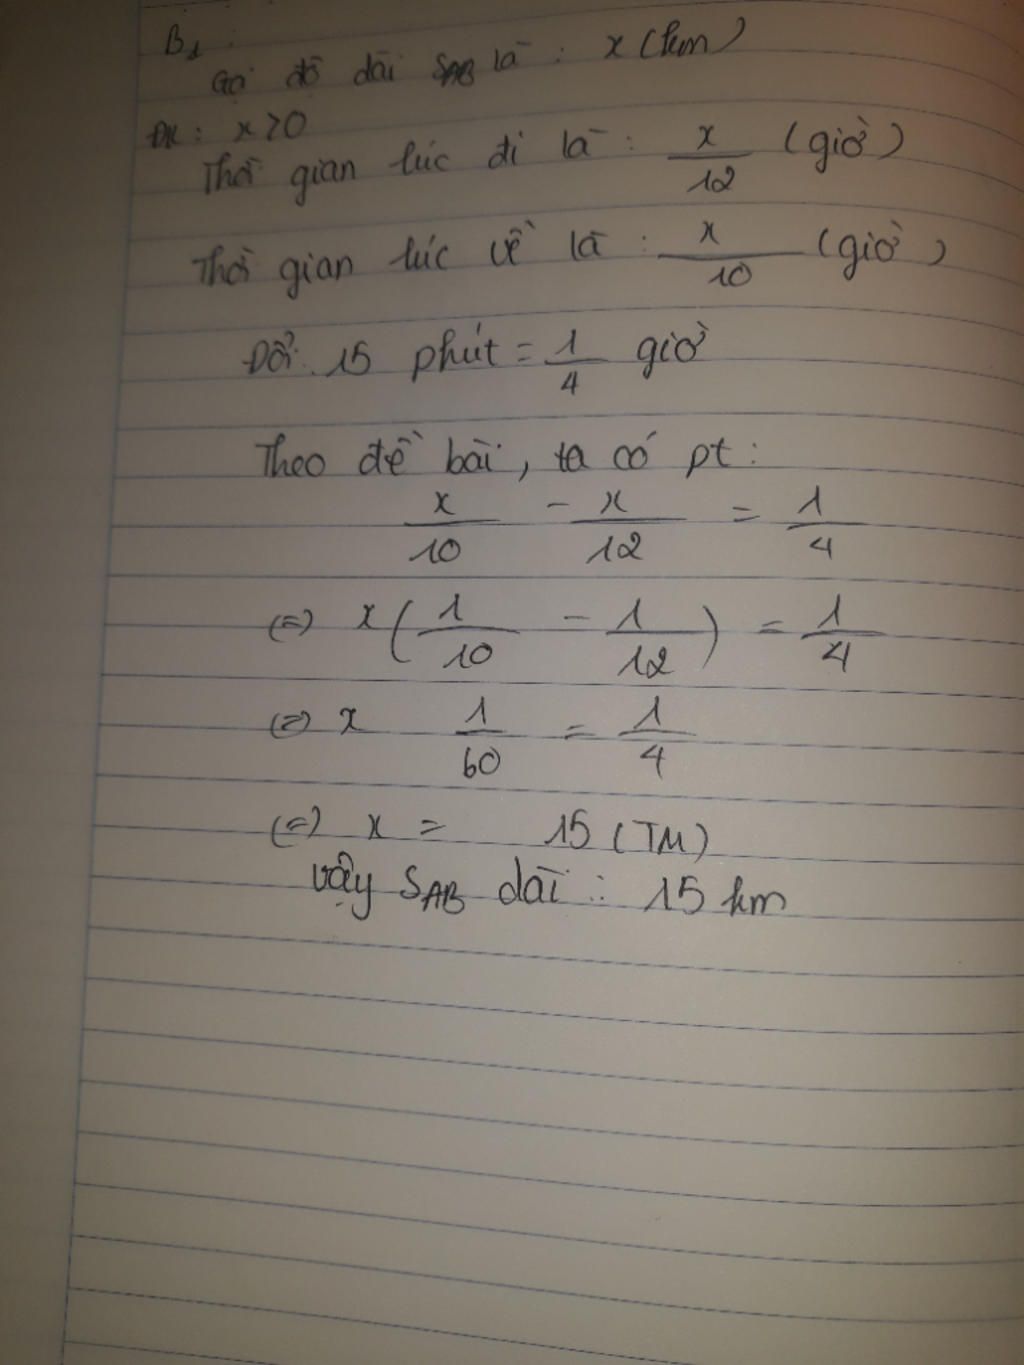 B1:
Gọi độ dài SAB là : x (km)
ĐK : x > 0
Thời gian lúc đi là : x/12 (giờ)
Thời gian lúc về là : x/10 (giờ)
Đổi : 15 phút = 1/4 giờ
Theo đề bài, ta có pt :
x/10 - x/12 = 1/4
(=) x(1/10 - 1/12) = 1/4
(=) x 1/60 = 1/4
(=) x = 15 (TM)
Vậy SAB dài : 15 km